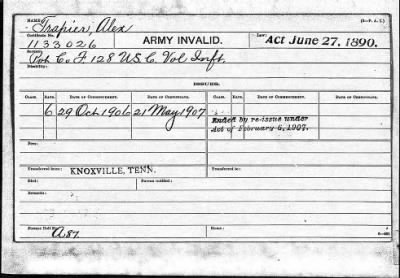 NAME:
(3-P. A. I.)
Trapier, Alex
Certificate No.
Law:
1133026
ARMY INVALID.
Act June 27, 1890.
Service:
Pvt. Co. F. 128 U.S.C. Vol Inft.
Disability:
ISSUES.
CLASS. RATE. DATE OF COMMENCEMENT. DATE OF CERTIFICATE. CLASS. RATE. DATE OF COMMENCEMENT. DATE OF CERTIFICATE.
6 29 Oct 1906 21 May 1907
Ended by re-issue under
Act of February 6, 1907.
Fees:
Transferred from:
KNOXVILLE, TENN.
Died:
Bureau notified:
Remarks:
Former Roll No.
Home:
A 87.